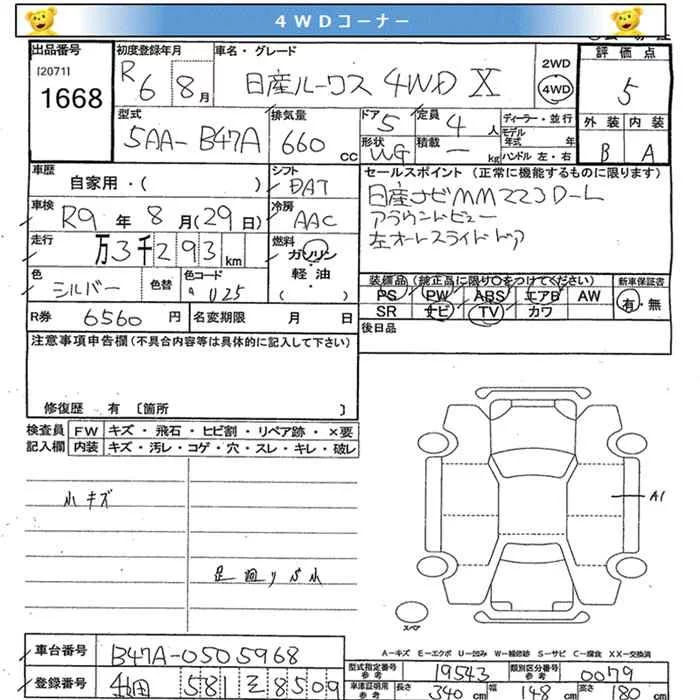 4WDコーナー
出品番号 初度登録年月 車名・グレード 評価点
[2071] 1668 R6 8月 日産ルークス 4WD X 2WD 4WD 5
型式 排気量 ドア 定員 ディーラー・並行 外装 内装
5AA-B47A 660cc 5 4人 モデル年式 年
形状 積載 ハンドル 左・右 B A
WG ー kg
車歴 シフト セールスポイント (正常に機能するものに限ります)
自家用・( ) DAT 日産ナビMM223D-L
車検 冷房 アラウンドビュー
R9年8月(29日) AAC 左オートスライドドア
走行 燃料
万3千293km ガソリン・軽油( )
色 色替 色コード 装備品 (純正品に限り○をつけてください) 新車保証書
シルバー U25 PS PW ABS エアB AW 有・無
R券 6560円 名変期限 月 日 SR ナビ TV カワ
注意事項申告欄(不具合内容等は具体的に記入して下さい) 後日品
修復歴 有 〔箇所 〕
検査員記入欄 FW キズ・飛石・ヒビ割・リペア跡・×要
内装 キズ・汚レ・コゲ・穴・スレ・キレ・破レ
小キズ A1
足廻りサビ小
スペア
A-キズ E-エクボ U-凹み W-補修跡 S-サビ C-腐食 XX-交換済
車台番号 B47A-0505968 型式指定番号 参考 19543 類別区分番号 参考 0079
登録番号 581 8509 車庫証明用 参考 長さ 340cm 幅 148cm 高さ 180cm